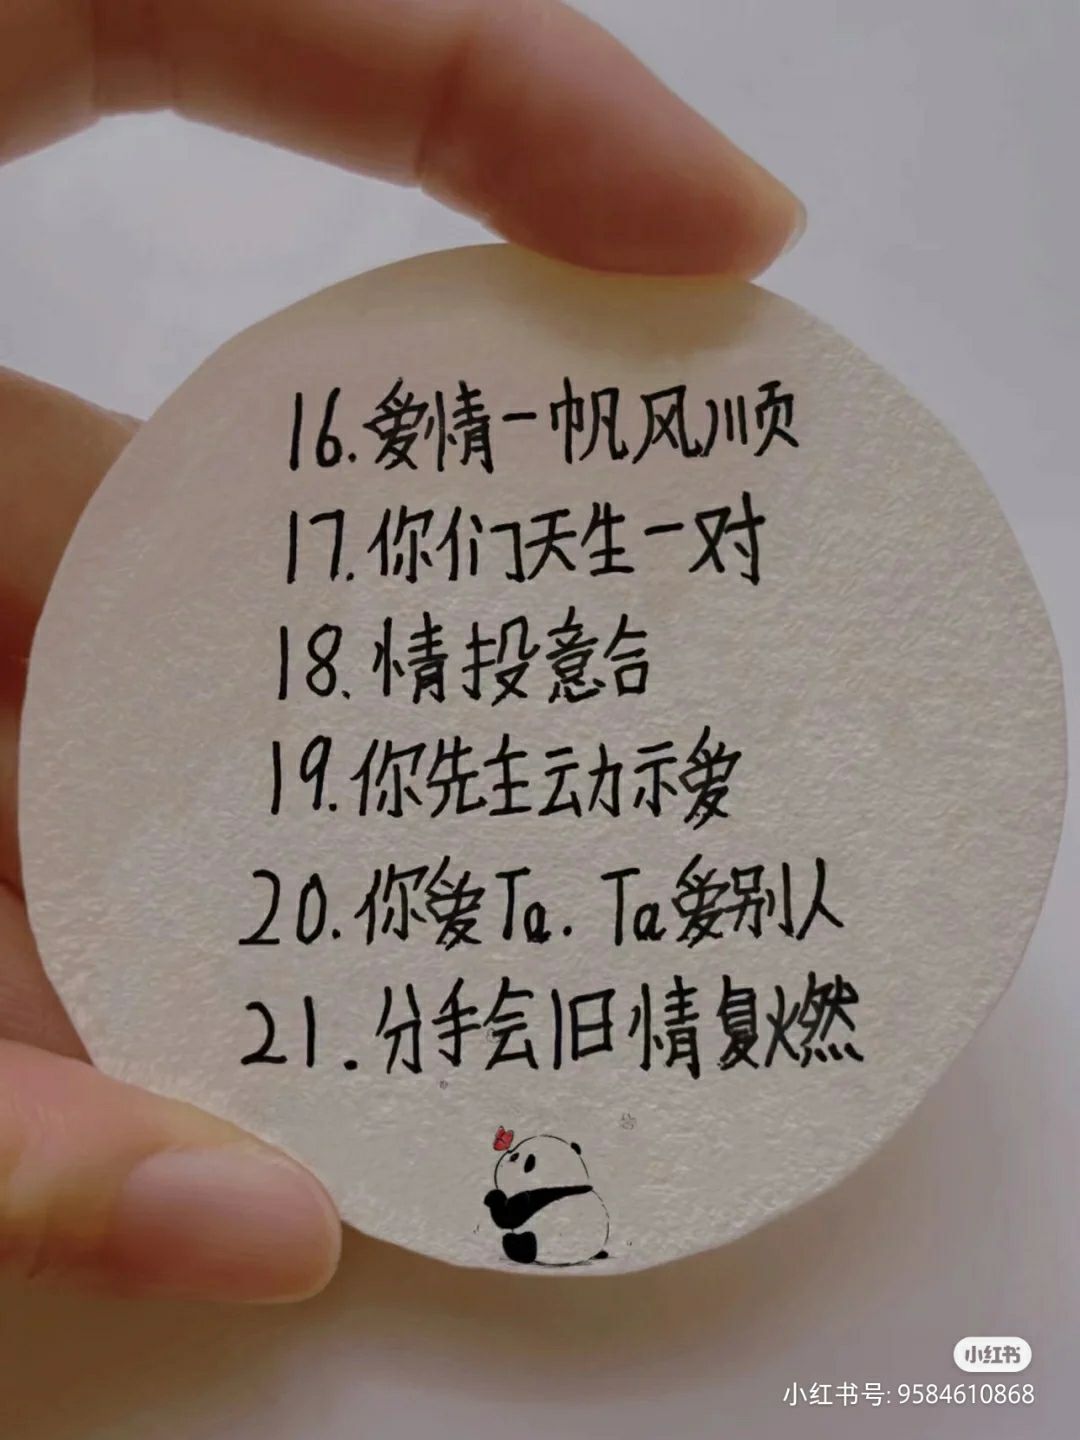 16.爱情一帆风顺
17.你们天生一对
18、情投意合
19.你先主动示爱
20.你爱Ta.Ta爱别人
21.分手会旧情复燃
小红书
小红书号: 9584610868